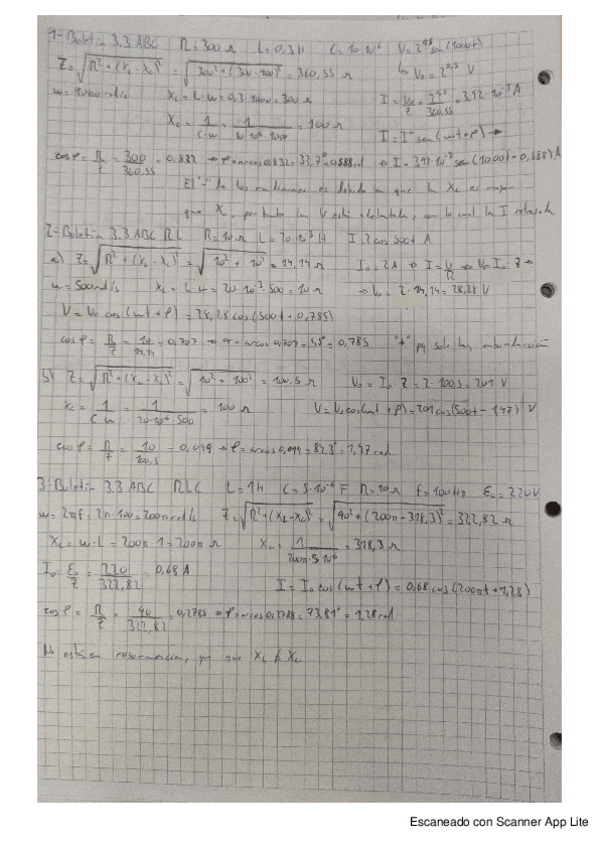 1-Boletín 3.3 ABC R=300 Ω L=0,3H C=10·10⁻⁶ V=2^0,5 sen(1000t)
Z=√(R²+(XL-XC)²)=√(300²+(300-100)²)=360,55 Ω ↳ V₀=2^0,5 V
ω=1000 rad/s XL=L·ω=0,3·1000=300 Ω I=V₀/Z=2^0,5/360,55=3,92·10⁻³ A
XC=1/(C·ω)=1/(10·10⁻⁶·1000)=100 Ω I=I sen(ωt+φ)→
cos φ=R/Z=300/360,55=0,832 → φ=arcos 0,832=33,7°=0,588 rad → I=3,92·10⁻³ sen(1000t-0,588) A
El "-" de los radianes es debido a que la XL es mayor
que XC, por tanto la V está adelantada, con lo cual la I retrasada
2-Boletín 3.3 ABC RL R=10 Ω L=20·10⁻³ H I=2cos 500t A
a) Z=√(R²+(XL-XC)²)=√(10²+10²)=14,14 Ω I₀=2A → I=V/R → V₀=I₀·Z→
ω=500 rad/s XL=L·ω=20·10⁻³·500=10 Ω → V₀=2·14,14=28,28 V
V=V₀ cos(ωt+φ)=28,28 cos(500t+0,785)
cos φ=R/Z=10/14,14=0,707 → φ=arcos 0,707=45°=0,785 "+" pq solo hay
b) Z=√(R²+(XL-XC)²)=√(10²+100²)=100,5 Ω V₀=I₀·Z=2·100,5=201 V
XC=1/(C·ω)=1/(20·10⁻⁶·500)=100 Ω V=V₀cos(ωt+φ)=201cos(500t-1,47) V
cos φ=R/Z=10/100,5=0,099 → φ=arcos 0,099=84,3°=1,47 rad
3-Boletín 3.3 ABC RLC L=1H C=5·10⁻⁶ F f=100Hz ε₀=220V
ω=2πf=2π·100=200π rad/s Z=√(R²+(XL-XC)²)=√(90²+(200π-318,3)²)=322,82 Ω
XL=ω·L=200π·1=200π Ω XC=1/(200π·5·10⁻⁶)=318,3 Ω
I₀=ε₀/Z=220/322,82=0,68 A I=I₀ cos(ωt+φ)=0,68 cos(200πt+1,28)
cos φ=R/Z=90/322,82=0,2788 → φ=arcos 0,2788=73,81°=1,28 rad
No está en resonancia, ya que XL≠XC
Escaneado con Scanner App Lite